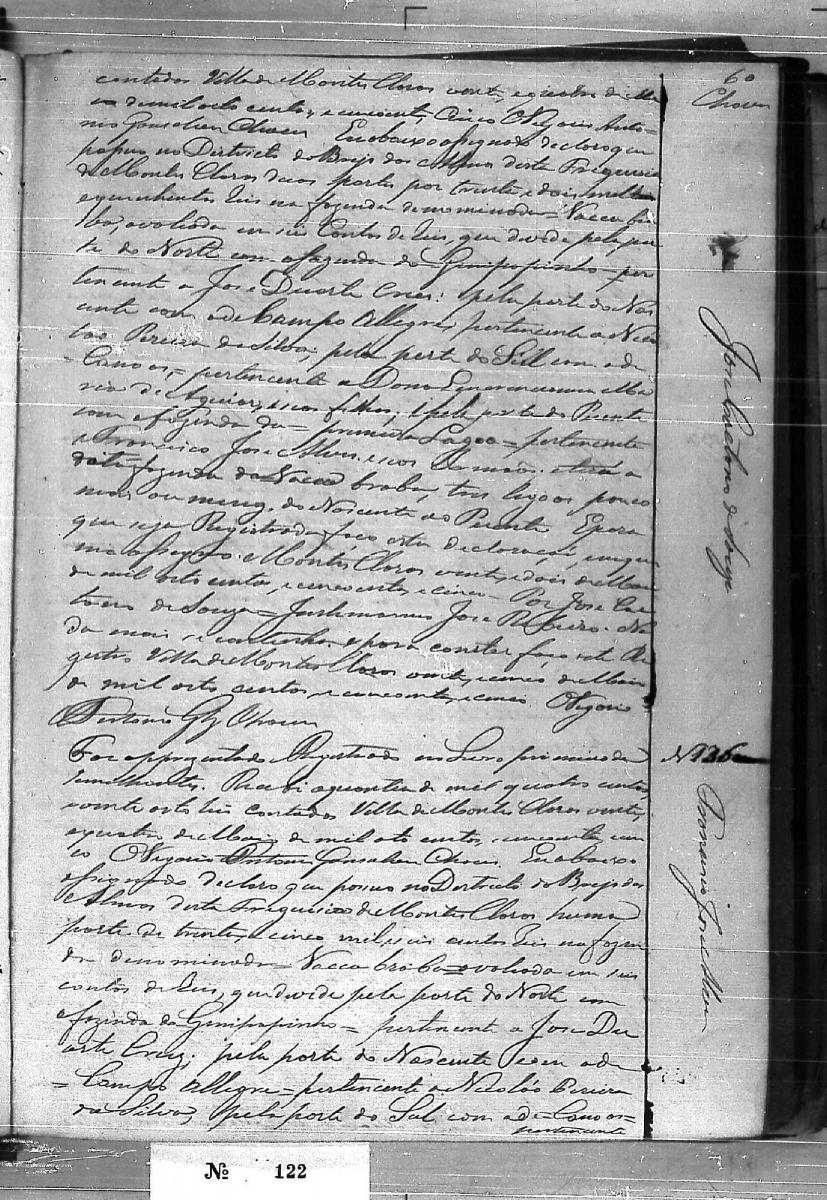 60
Chaves
contados Villa de Montes Claros vinte, e quatro de Ma
io de mil oito centos, e cincoenta, Cinco O Vigario Anto-
nio Gonsalves Chaves Eu abaixo assignado declaro que
possuo no Districto do Brejo das Almas desta Freguesia
de Montes Claros duas partes por trinta, e dois mil
e quinhentos reis na fazenda denominada = Vacca bra
ba, avaliada em seis Contos de reis, que divide pela par
te do Norte com a fazenda do Genipapinho = per
tencente a Jose Duarte Cruz; pela parte do Nas
cente com a de Campo Allegre, pertencente a Nico
láo Pereira da Silva, pela parte do Sul com a de
Canoas, = pertencente a Dona Ma
ria de Aguiar, e seos filhos, e pela parte do Poente
com a fazenda da = primeira Lagoa = pertencente
a Francisco Jose Alves, e seos Irmaõs: terá a
dita fazenda da Vacca braba, tres legoas pouco
mais ou menos, do Nascente ao Poente E para
que seja Registrada faço esta declaraçaõ, em que
me assigno. Montes Claros vinte, e dois de Maio
de mil oito centos, e cincoenta, e cinco = Por Jose Cae
tano de Souza = Jose Ribeiro. Na
da mais, se continha, e para constar faço este Re
gistro Villa de Montes Claros vinte, e cinco de Maio
de mil oito centos, e cincoenta, e cinco O Vigario
Antonio Glz Chaves
Jose Caetano de Souza
N 136
Foi appresentado Registrado no Livro primeiro de
semelhantes. Recebi a quantia de mil quatro centos,
e vinte oito reis contados Villa de Montes Claros vinte,
e quatro de Maio de mil oito centos, e cincoenta, cin
co O Vigario Antonio Gonsalves Chaves. Eu abaixo
assignado declaro que possuo no Districto do Brejo das
Almas desta Freguesia de Montes Claros huma
parte de trinta, e cinco mil, e seis centos Reis na fazen
da denominada = Vacca braba = avaliada em seis
contos de Reis, que divide pela parte do Norte com
a fazenda da Genipapinho = pertencente a Jose Du
arte Cruz; pela parte do Nascente com a de
= Campo Allegre = pertencente a Nicoláo Pereira
da Silva, pela parte do Sul com a de = Canoas =
pertencente
Jose Alves
Nº 122